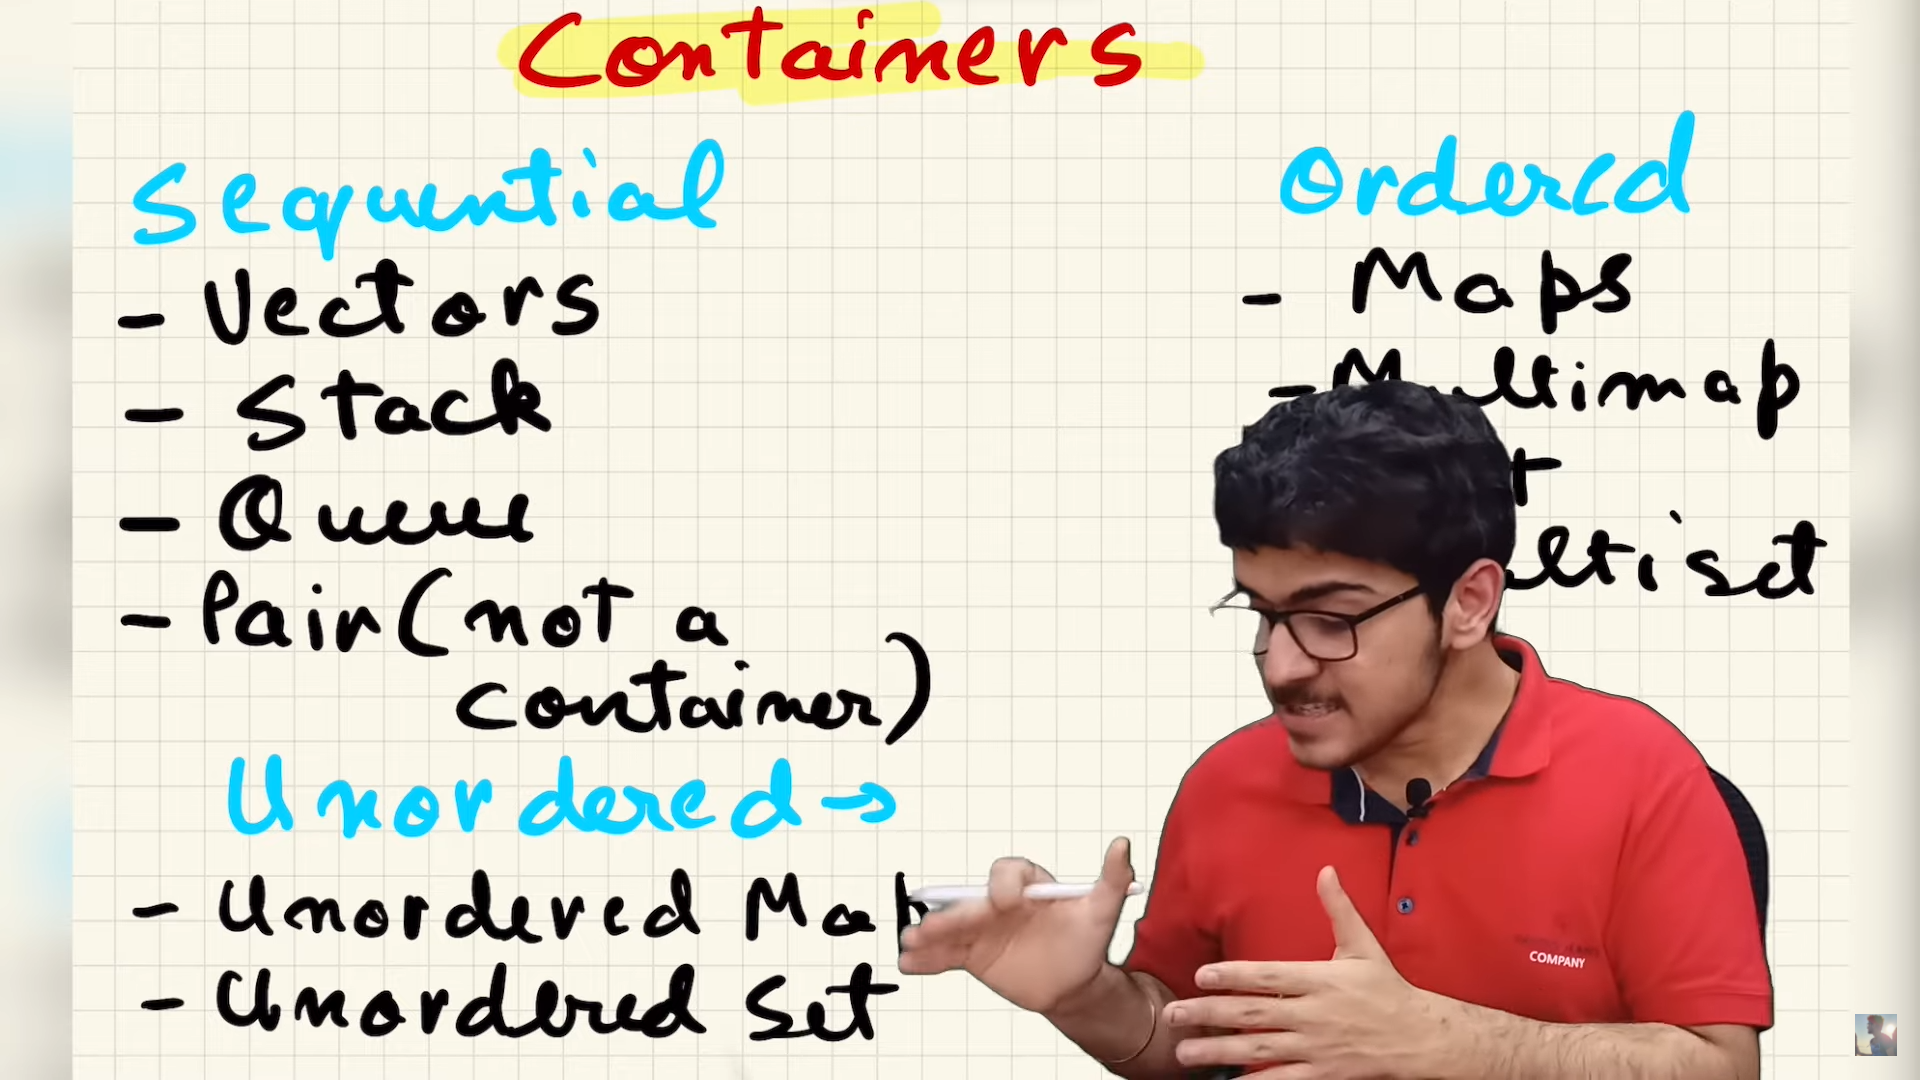 Containers
Sequential
- Vectors
- Stack
- Queue
- Pair (not a
container)
Unordered →
- Unordered Map
- Unordered Set
Ordered
- Maps
- Multimap
COMPANY